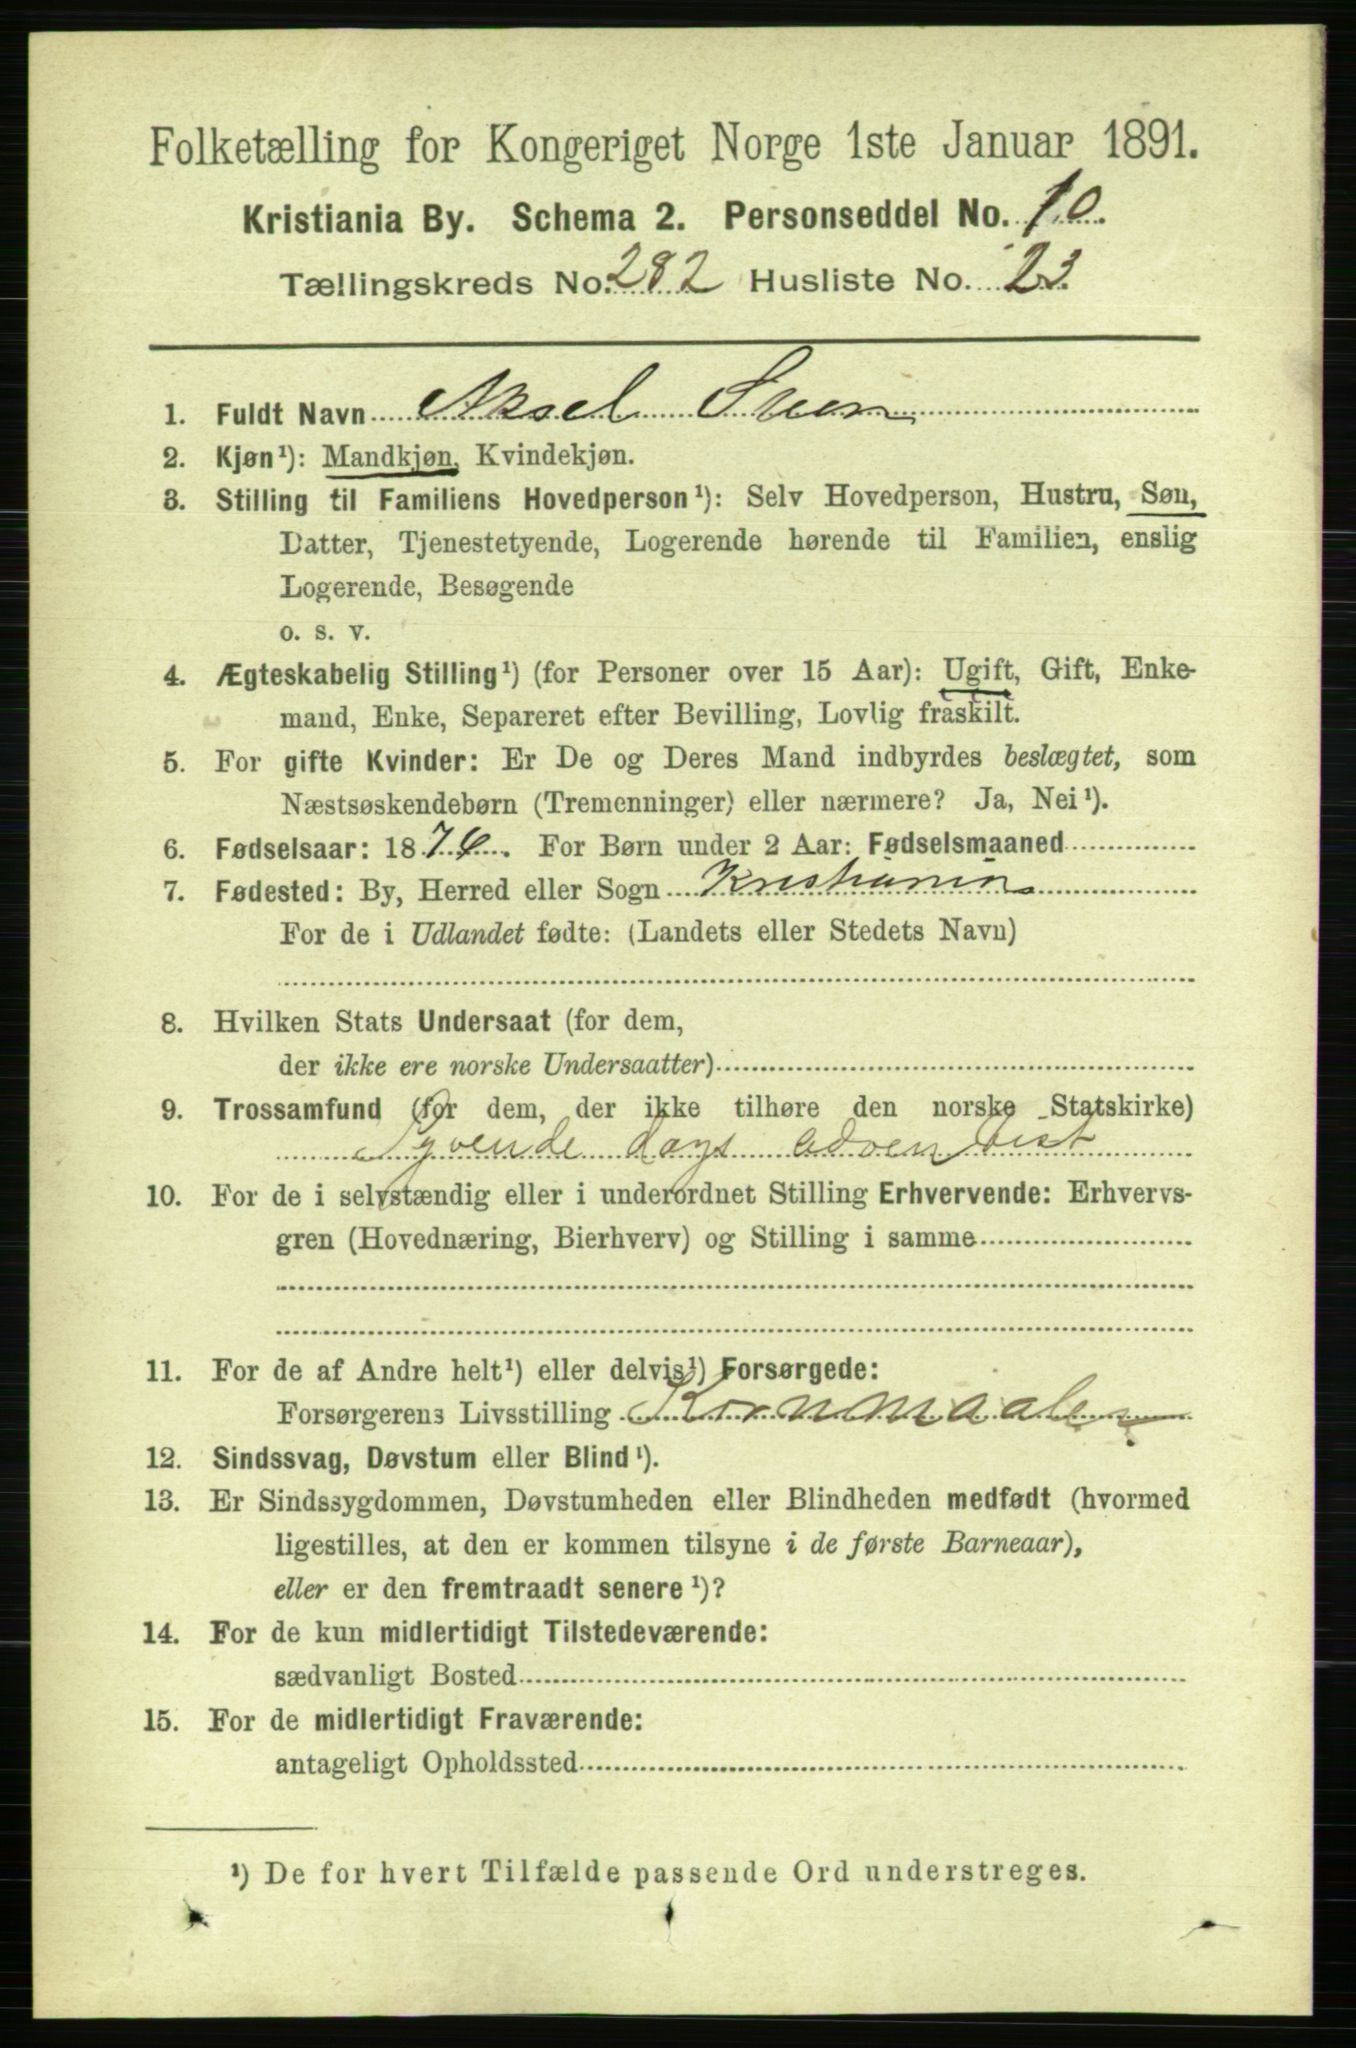 Folketælling for Kongeriget Norge 1ste Januar 1891.
Kristiania By. Schema 2. Personseddel No. 10.
Tællingskreds No. 282 Husliste No. 23.
1. Fuldt Navn Aksel
2. Kjøn¹): Mandkjøn, Kvindekjøn.
3. Stilling til Familiens Hovedperson¹): Selv Hovedperson, Hustru, Søn,
Datter, Tjenestetyende, Logerende hørende til Familien, enslig
Logerende, Besøgende
o. s. v.
4. Ægteskabelig Stilling¹) (for Personer over 15 Aar): Ugift, Gift, Enke-
mand, Enke, Separeret efter Bevilling, Lovlig fraskilt.
5. For gifte Kvinder: Er De og Deres Mand indbyrdes beslægtet, som
Næstsøskendebørn (Tremenninger) eller nærmere? Ja, Nei¹).
6. Fødselsaar: 1876. For Børn under 2 Aar: Fødselsmaaned
7. Fødested: By, Herred eller Sogn Kristiania
For de i Udlandet fødte: (Landets eller Stedets Navn)
8. Hvilken Stats Undersaat (for dem,
der ikke ere norske Undersaatter)
9. Trossamfund (for dem, der ikke tilhøre den norske Statskirke)
Syvende dags advendtist
10. For de i selvstændig eller i underordnet Stilling Erhvervende: Erhvervs-
gren (Hovednæring, Bierhverv) og Stilling i samme
11. For de af Andre helt¹) eller delvis¹) Forsørgede:
Forsørgerens Livsstilling Kornmaaler
12. Sindssvag, Døvstum eller Blind¹).
13. Er Sindssygdommen, Døvstumheden eller Blindheden medfødt (hvormed
ligestilles, at den er kommen tilsyne i de første Barneaar),
eller er den fremtraadt senere¹)?
14. For de kun midlertidigt Tilstedeværende:
sædvanligt Bosted
15. For de midlertidigt Fraværende:
antageligt Opholdssted
¹) De for hvert Tilfælde passende Ord understreges.